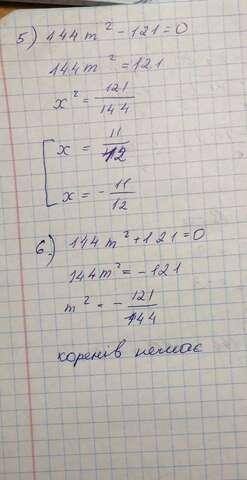 5) 144m² - 121 = 0
144m² = 121
x² = 121/144
[ x = 11/12
x = - 11/12
6) 144m² + 121 = 0
144m² = - 121
m² = - 121/144
коренів немає